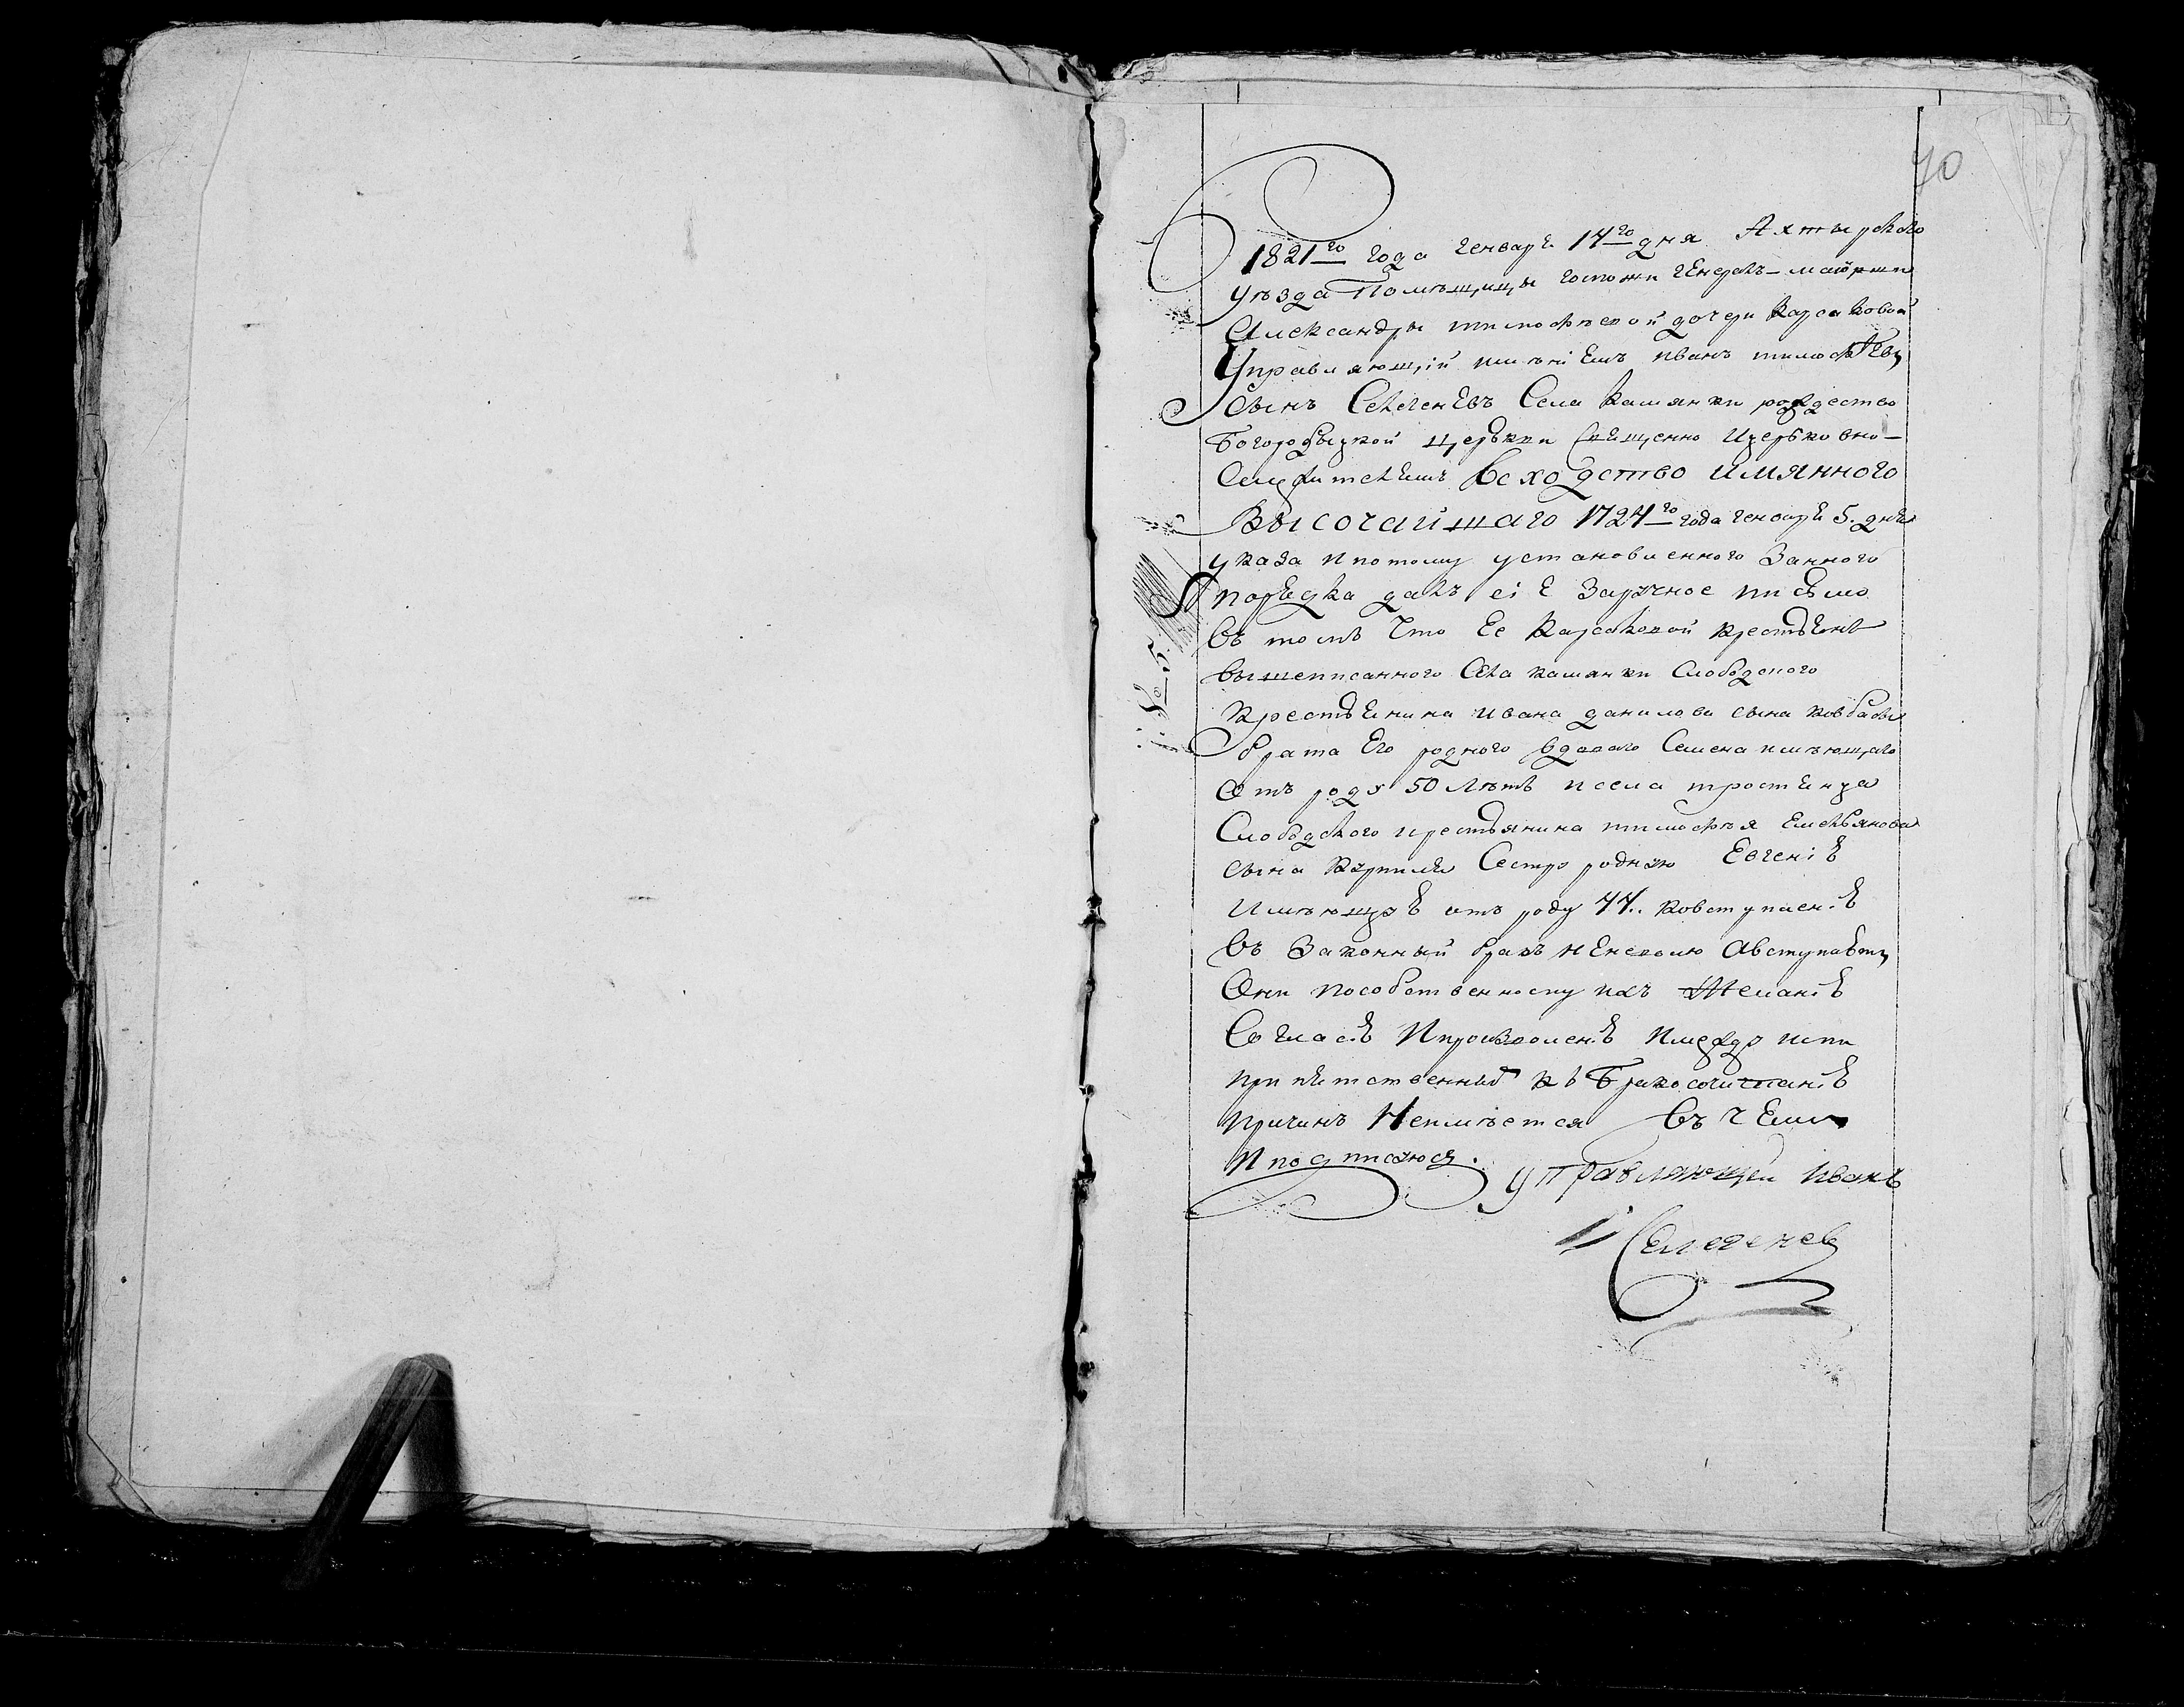 70
1821го года генваря 14го дня Ахтырского
уѣзда Помѣщицы госпожи генералъ-маіорши
Александры тимофѣевой дочери Карсаковой
Управляющій имѣніемъ иванъ тимофѣевъ
сынъ Селегенѣвъ Села Камянки рождество
Богородыцкой церьkви Священно Ицерьковно-
Служителямъ Всходство имянного
Высочайшаго 1724го года генваря 5. дня
указа ипотому установленного Занного
порядка далъ сіе Заручное писмо
въ томъ Что Ее Карсаковой крестьянъ
вышеписанного Села камянки Слободского
крестьянина ивана данилова сына ковбасы
брата Его родного вдоваго Семена имѣющаго
Отъ роду 50 лѣтъ исела тростянца
Слободского крестьянина тимофѣя Емельянова
сына Сестру родную Евгенію
Имѣющую отъ роду 44.. ковступленію
въ Законный бракъ неневолю Авступаютъ
Они пособственному ихъ Желанію
Согласію Ипроизволенію Имежду ими
припятственныхъ къ Бракосочитанію
причинъ Неимѣется Въ чемъ
Иподписуюся. управляющей Иванъ
Селегенев
№ 5.